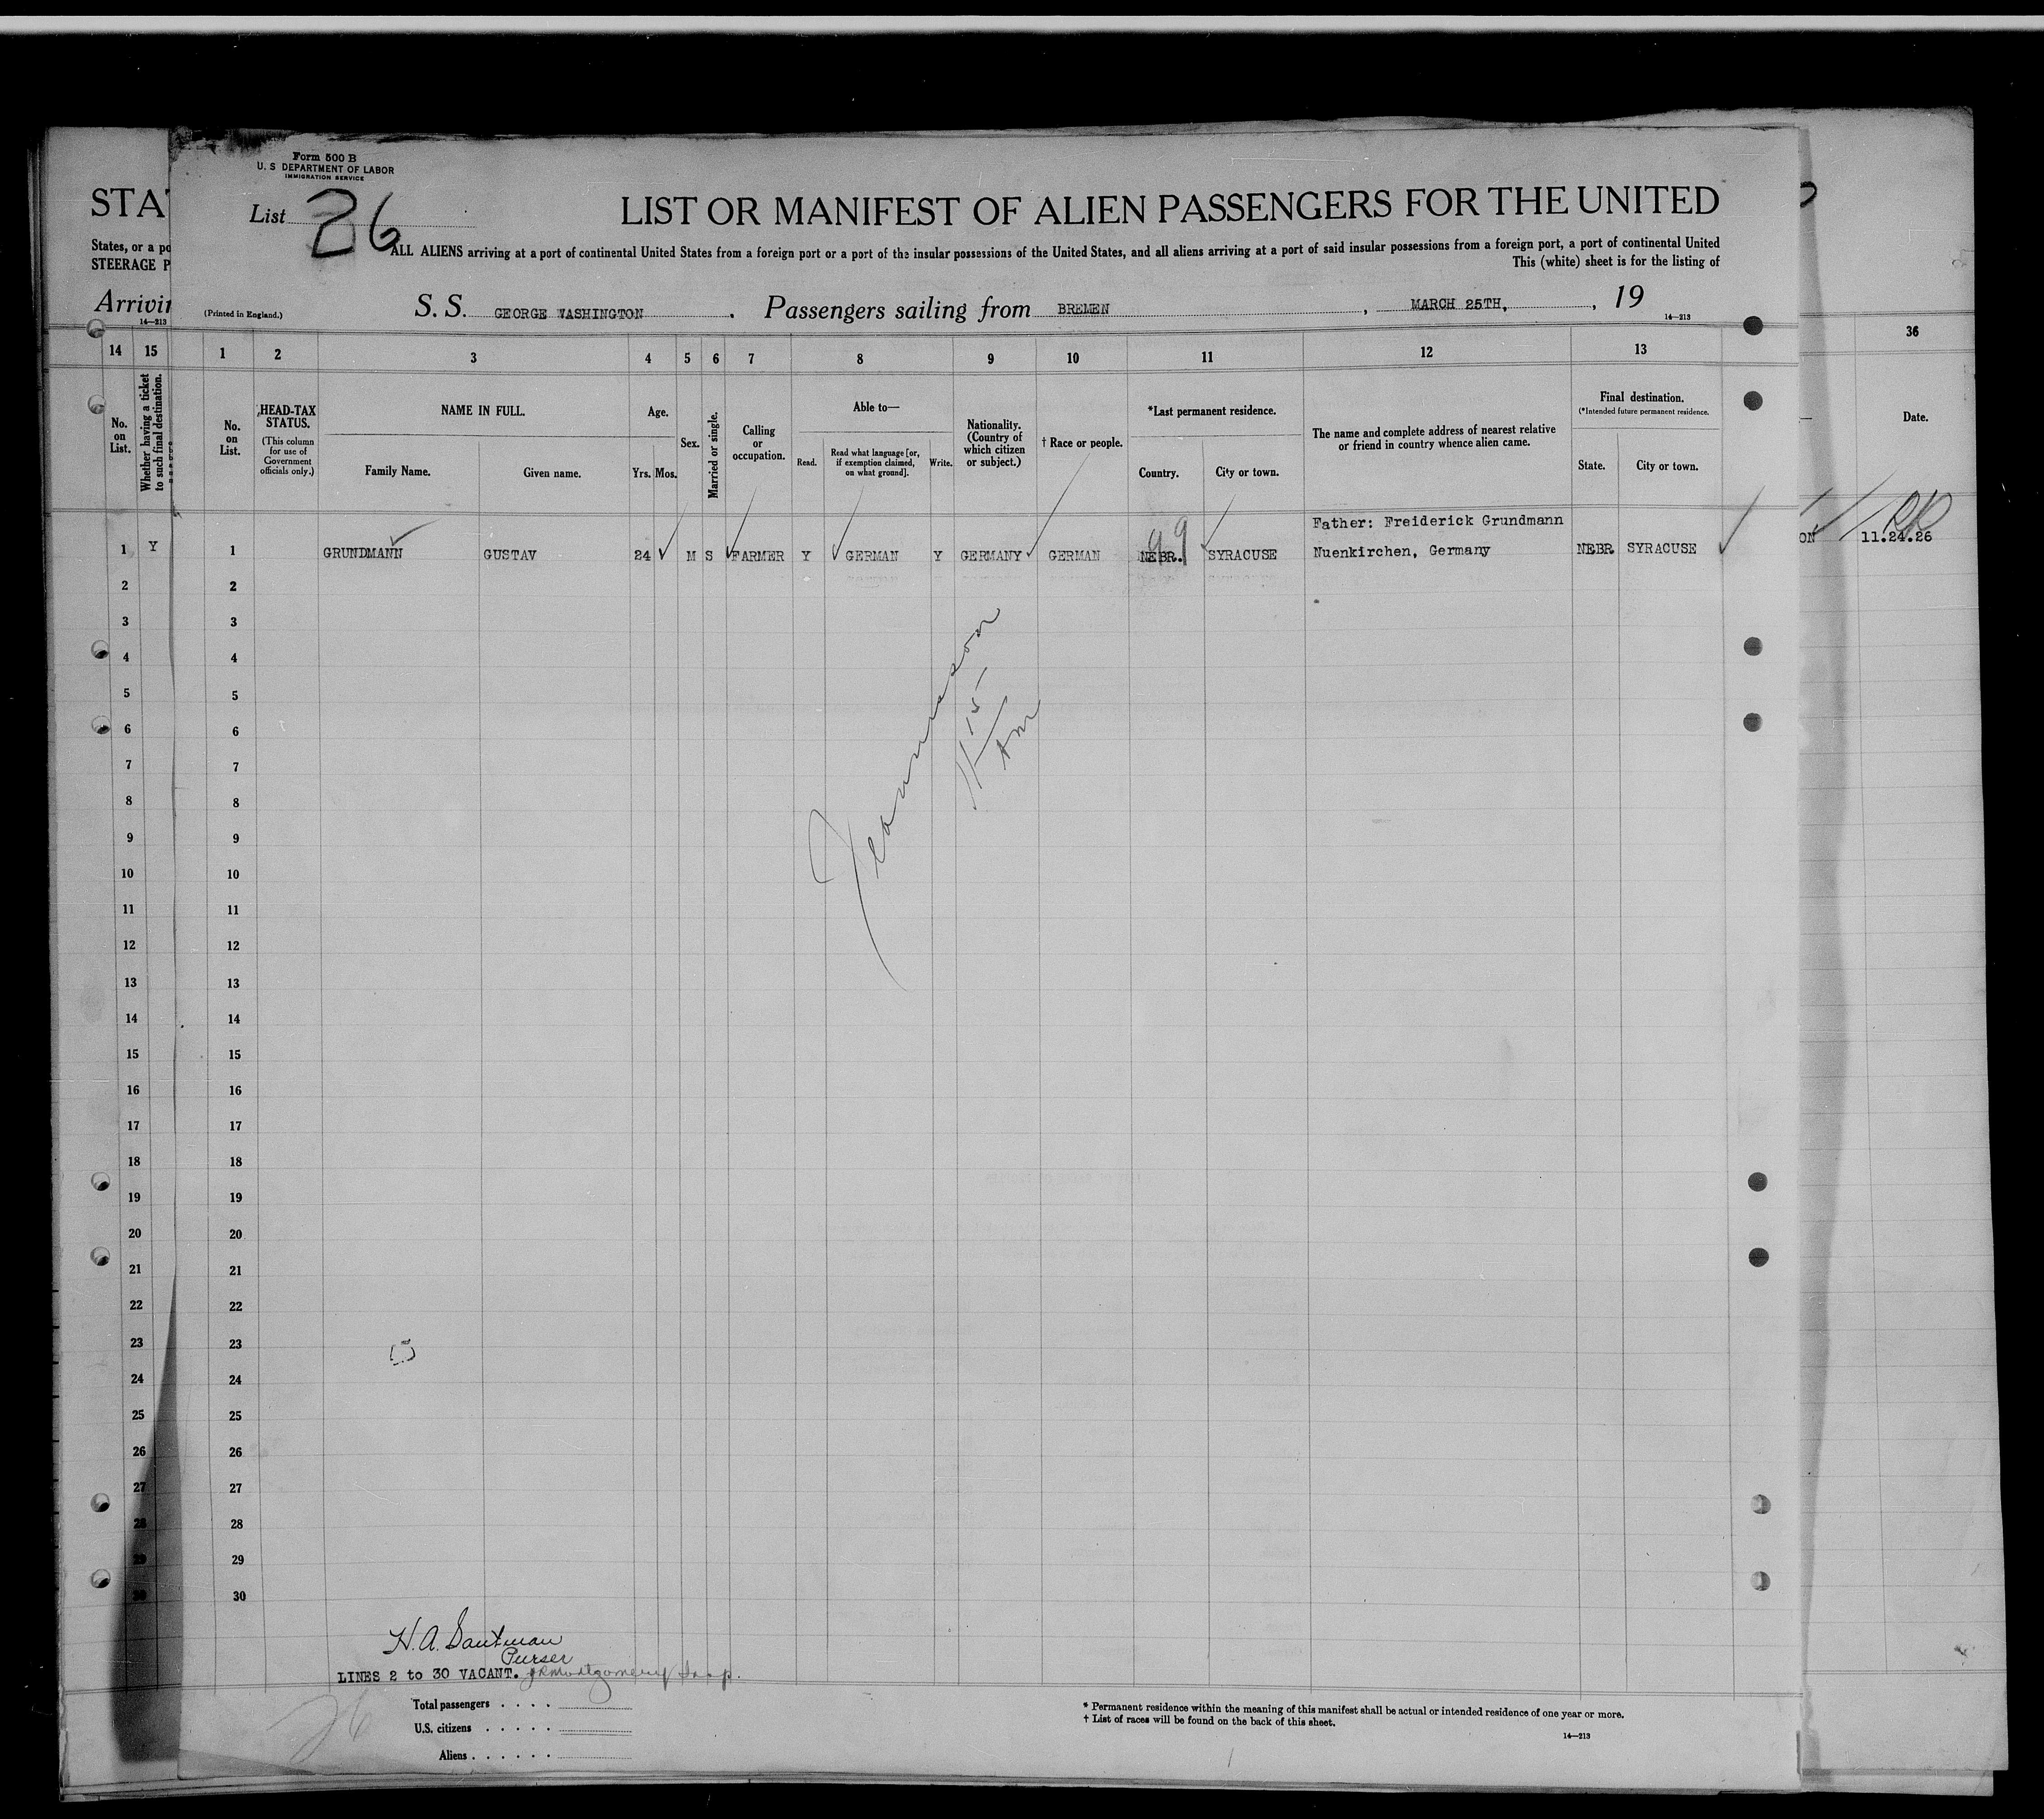 Form 500 B
U. S DEPARTMENT OF LABOR
IMMIGRATION SERVICE
STA
List 26
LIST OR MANIFEST OF ALIEN PASSENGERS FOR THE UNITED
States, or a po
STEERAGE P
ALL ALIENS arriving at a port of continental United States from a foreign port or a port of the insular possessions of the United States, and all aliens arriving at a port of said insular possessions from a foreign port, a port of continental United
This (white) sheet is for the listing of
Arrivin
14—213
(Printed in England.)
S. S. GEORGE WASHINGTON . Passengers sailing from BREMEN , MARCH 25TH, , 19
14—213
14 15 1 2 3 4 5 6 7 8 9 10 11 12 13 36
No. on List.
Whether having a ticket to such final destination.
No. on List.
HEAD-TAX STATUS.
(This column for use of Government officials only.)
NAME IN FULL.
Family Name. Given name.
Age.
Yrs. Mos.
Sex.
Married or single.
Calling or occupation.
Able to—
Read. Read what language [or, if exemption claimed, on what ground]. Write.
Nationality. (Country of which citizen or subject.)
† Race or people.
*Last permanent residence.
Country. City or town.
The name and complete address of nearest relative or friend in country whence alien came.
Final destination.
(*Intended future permanent residence.
State. City or town.
Date.
Father: Freiderick Grundmann
1 Y 1 GRUNDMANN GUSTAV 24 M S FARMER Y GERMAN Y GERMANY GERMAN NEBR. 99 SYRACUSE Nuenkirchen, Germany NEBR SYRACUSE ON 11.24.26
2 2
3 3
4 4
5 5
6 6
7 7
8 8
9 9
10 10
11 11
12 12
13 13
14 14
15 15
16 16
17 17
18 18
19 19
20 20
21 21
22 22
23 23
24 24
25 25
26 26
27 27
28 28
29 29
30 30
11 15 AM
H. A. Santman
Purser
LINES 2 to 30 VACANT. JR Montgomery Insp.
26
Total passengers . . . .
U.S. citizens . . . . .
Aliens . . . . . .
* Permanent residence within the meaning of this manifest shall be actual or intended residence of one year or more.
† List of races will be found on the back of this sheet.
14—213